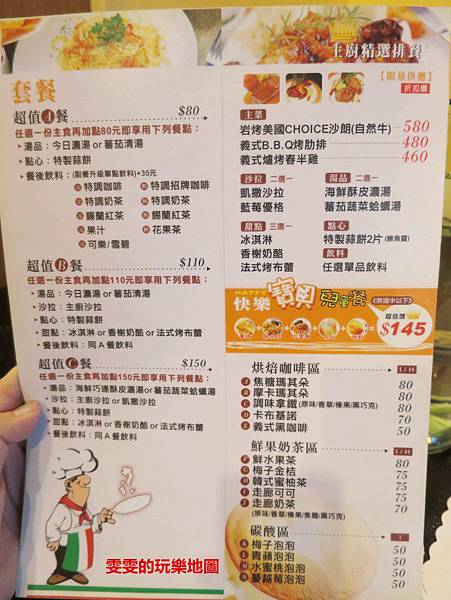 套餐
超值A餐 $80
任選一份主食再加點80元即享用下列餐點:
湯品:今日濃湯 or 蕃茄清湯
點心:特製蒜餅
餐後飲料:(副餐升級單點飲料)+35元
冰 特調咖啡 熱 特調招牌咖啡
冰 特調奶茶 熱 特調奶茶
冰 錫蘭紅茶 熱 錫蘭紅茶
冰 果汁 熱 花果茶
冰 可樂/雪碧
超值B餐 $110
任選一份主食再加點110元即享用下列餐點:
湯品:今日濃湯 or 蕃茄清湯
沙拉:主廚沙拉
點心:特製蒜餅
甜點:冰淇淋 or 香榭奶酪 or 法式烤布蕾
餐後飲料:同A餐飲料
超值C餐 $150
任選一份主食再加點150元即享用下列餐點:
湯品:海鮮巧達酥皮濃湯or蕃茄蔬菜蛤蠣湯
沙拉:主廚沙拉 or 凱撒沙拉
點心:特製蒜餅
甜點:冰淇淋 or 香榭奶酪 or 法式烤布蕾
餐後飲料:同A餐飲料
主廚精選排餐
【限量供應】
折扣價
主菜
岩烤美國CHOICE沙朗(自然牛) 580
義式B.B.Q烤肋排 480
義式爐烤春半雞 460
沙拉 二選一 湯品 二選一
凱撒沙拉 海鮮酥皮濃湯
藍莓優格 蕃茄蔬菜蛤蠣湯
甜點 三選一 點心
冰淇淋 特製蒜餅2片
香榭奶酪 飲料
法式烤布蕾 任選單品飲料
HAPPY
快樂寶貝兒童餐 (限國中以下)
超值價
$145
烘焙咖啡區 I/H
A 焦糖瑪其朵 80
B 摩卡瑪其朵 80
C 調味拿鐵(原味/香草/榛果/黑巧克) 80
D 卡布基諾 70
E 義式黑咖啡 50
鮮果奶茶區 I/H
F 鮮水果茶 80
G 梅子金桔 75
H 韓式蜜柚茶 75
I 走廊可可 75
J 走廊奶茶 70
(原味/香草/榛果/焦糖/黑巧克)
碳酸區 I
K 梅子泡泡 50
L 青蘋泡泡 50
M 水蜜桃泡泡 50
N 蔓越莓泡泡 50
雯雯的玩樂地圖